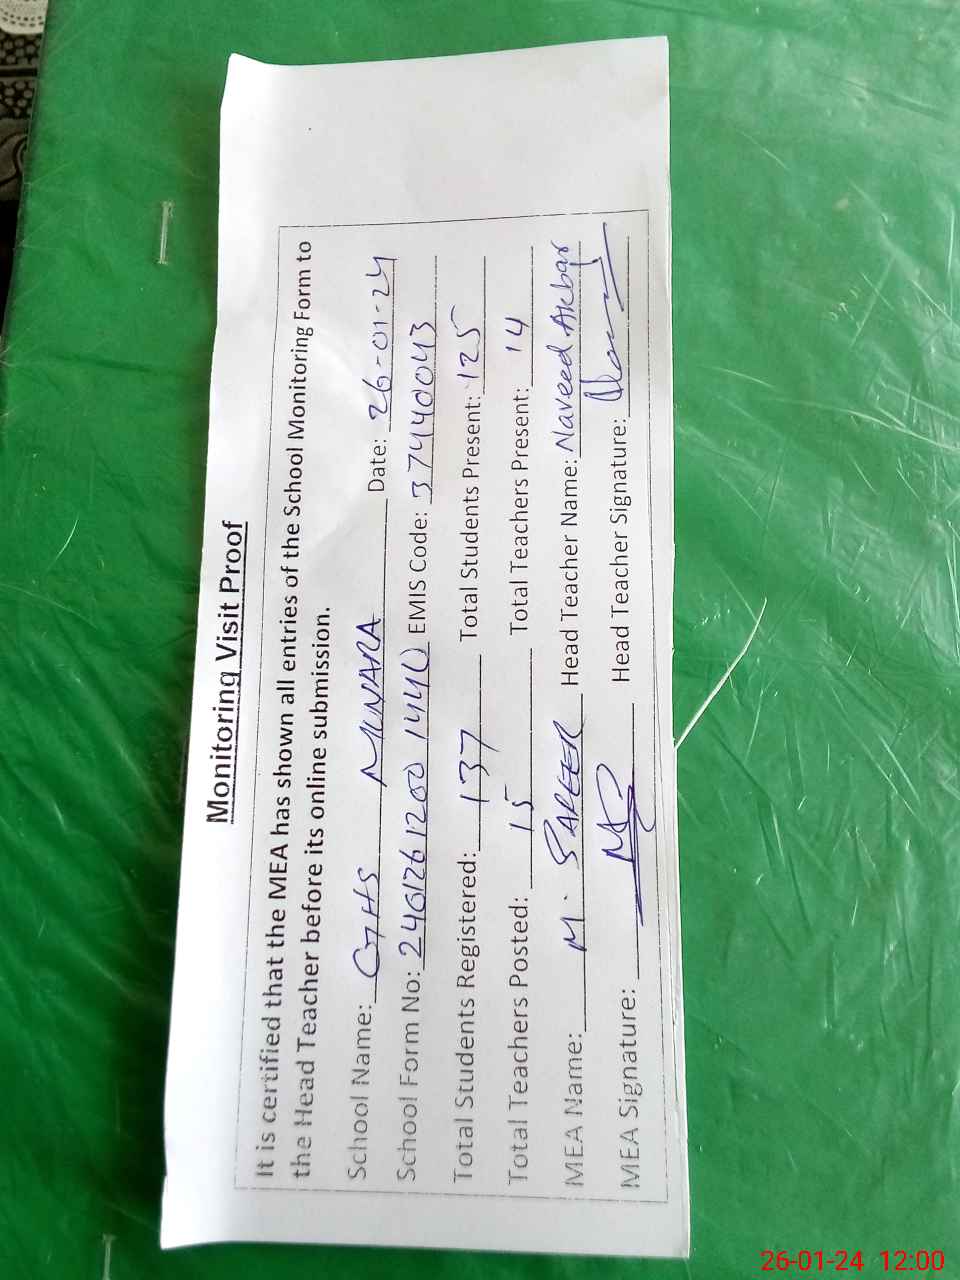 Monitoring Visit Proof
It is certified that the MEA has shown all entries of the School Monitoring Form to
the Head Teacher before its online submission.
School Name: GHS MUNARA Date: 26-01-24
School Form No: EMIS Code: 37440043
Total Students Registered: 137 Total Students Present: 125
Total Teachers Posted: 15 Total Teachers Present: 14
MEA Name: M. SAFEER Head Teacher Name: Naveed Akbar
MEA Signature: Head Teacher Signature:
26-01-24 12:00